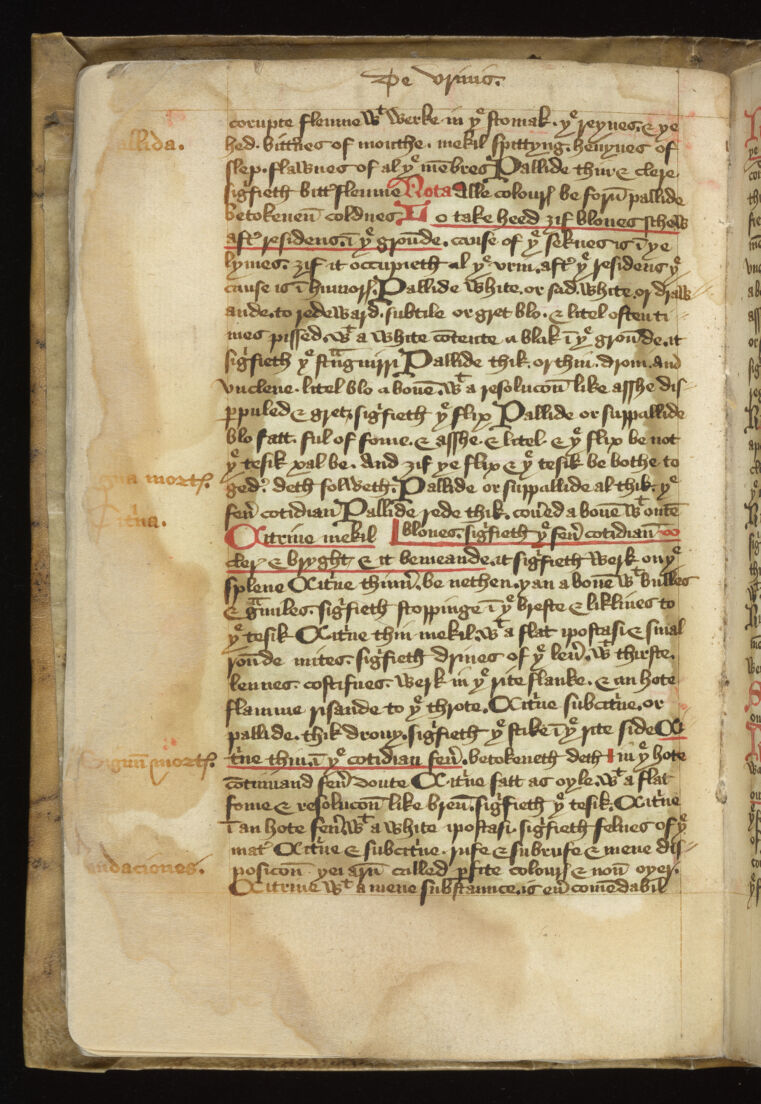 De vrinis.
corupte flemme wt werke in ye stomak. ye reynes. & ye
allida.
hed. bitt'nes of mouthe. mekil spittyng. heuynes of
slep. flawnes of al ye mēbres Pallide thur & clere
sig'fieth bitt' flemme Nota Alle colours be forn pallide
betokenen coldnes Lo take heed zif bloues schew
aft' residens. ī ye groūde. cause of ye seknes is ī ye
lymes. zif it occupieth al ye vrin. aft' ye residens ye
cause is ī humors. Pallide white. or sad white. or draw
ande. to redeward. subtile or gret blo. & litel oftenti
mes pissed. wt a white cōtente a blak ī ye groūde. it
sig'fieth ye strāguirri Pallide thik. or thin. drom. and
vnclene. litel blo a bouē. wt a resolucōn like asshe dis
ppuled & gret, sig'fieth ye flix Pallide or suppallide
blo fatt. ful of fome. & asshe. & litel. & ye flix be not
ye tesik xal be. And zif ye flix & ye tesik be bothe to
gna mort'.
ged'. deth folweth. Pallide or suppallide al thik. ye
Citr'na.
feu' cotidian Pallide rede thik. cou'ed a bouē wt outē
Citrine mekil bloues. sig'fieth ye feu' cotidian
cler & bryght & it bemeande. it sig'fieth werk on ye
splene Citr'ne thinn'. be nethen. yan a bouē wt bulles
& grāules. sig'fieth stoppinge ī ye breste & liklines to
ye tesik Citr'ne thin mekil. wt a flat ipostasi & smal
roūde mites. sig'fieth drines of ye leu'. wt thirste.
lennes. costifnes. werk in ye rite flanke. & an hote
flamme risande to ye throte. Citr'ne subcitr'ne. or
pallide. thik drouy. sig'fieth ye stike ī ye rite side Ci
Signū mort'.
tr'ne thin. ī ye cotidian feu'. betokeneth deth in ye hote
cōtinuand feu' doute Citr'ne fatt as oyle. wt a flat
fome & resolucōn like bren. sig'fieth ye tesik. Citr'ne
ī an hote feu' wt a white ipostasi. sig'fieth felnes of ye
mat' Citr'ne & subcitr'ne. rufe & subrufe & mene dis
ndaciones.
posicōn yei arn called pfite colours & non oyer.
Citrine wt a mene substaunce. is eu' comēdabil